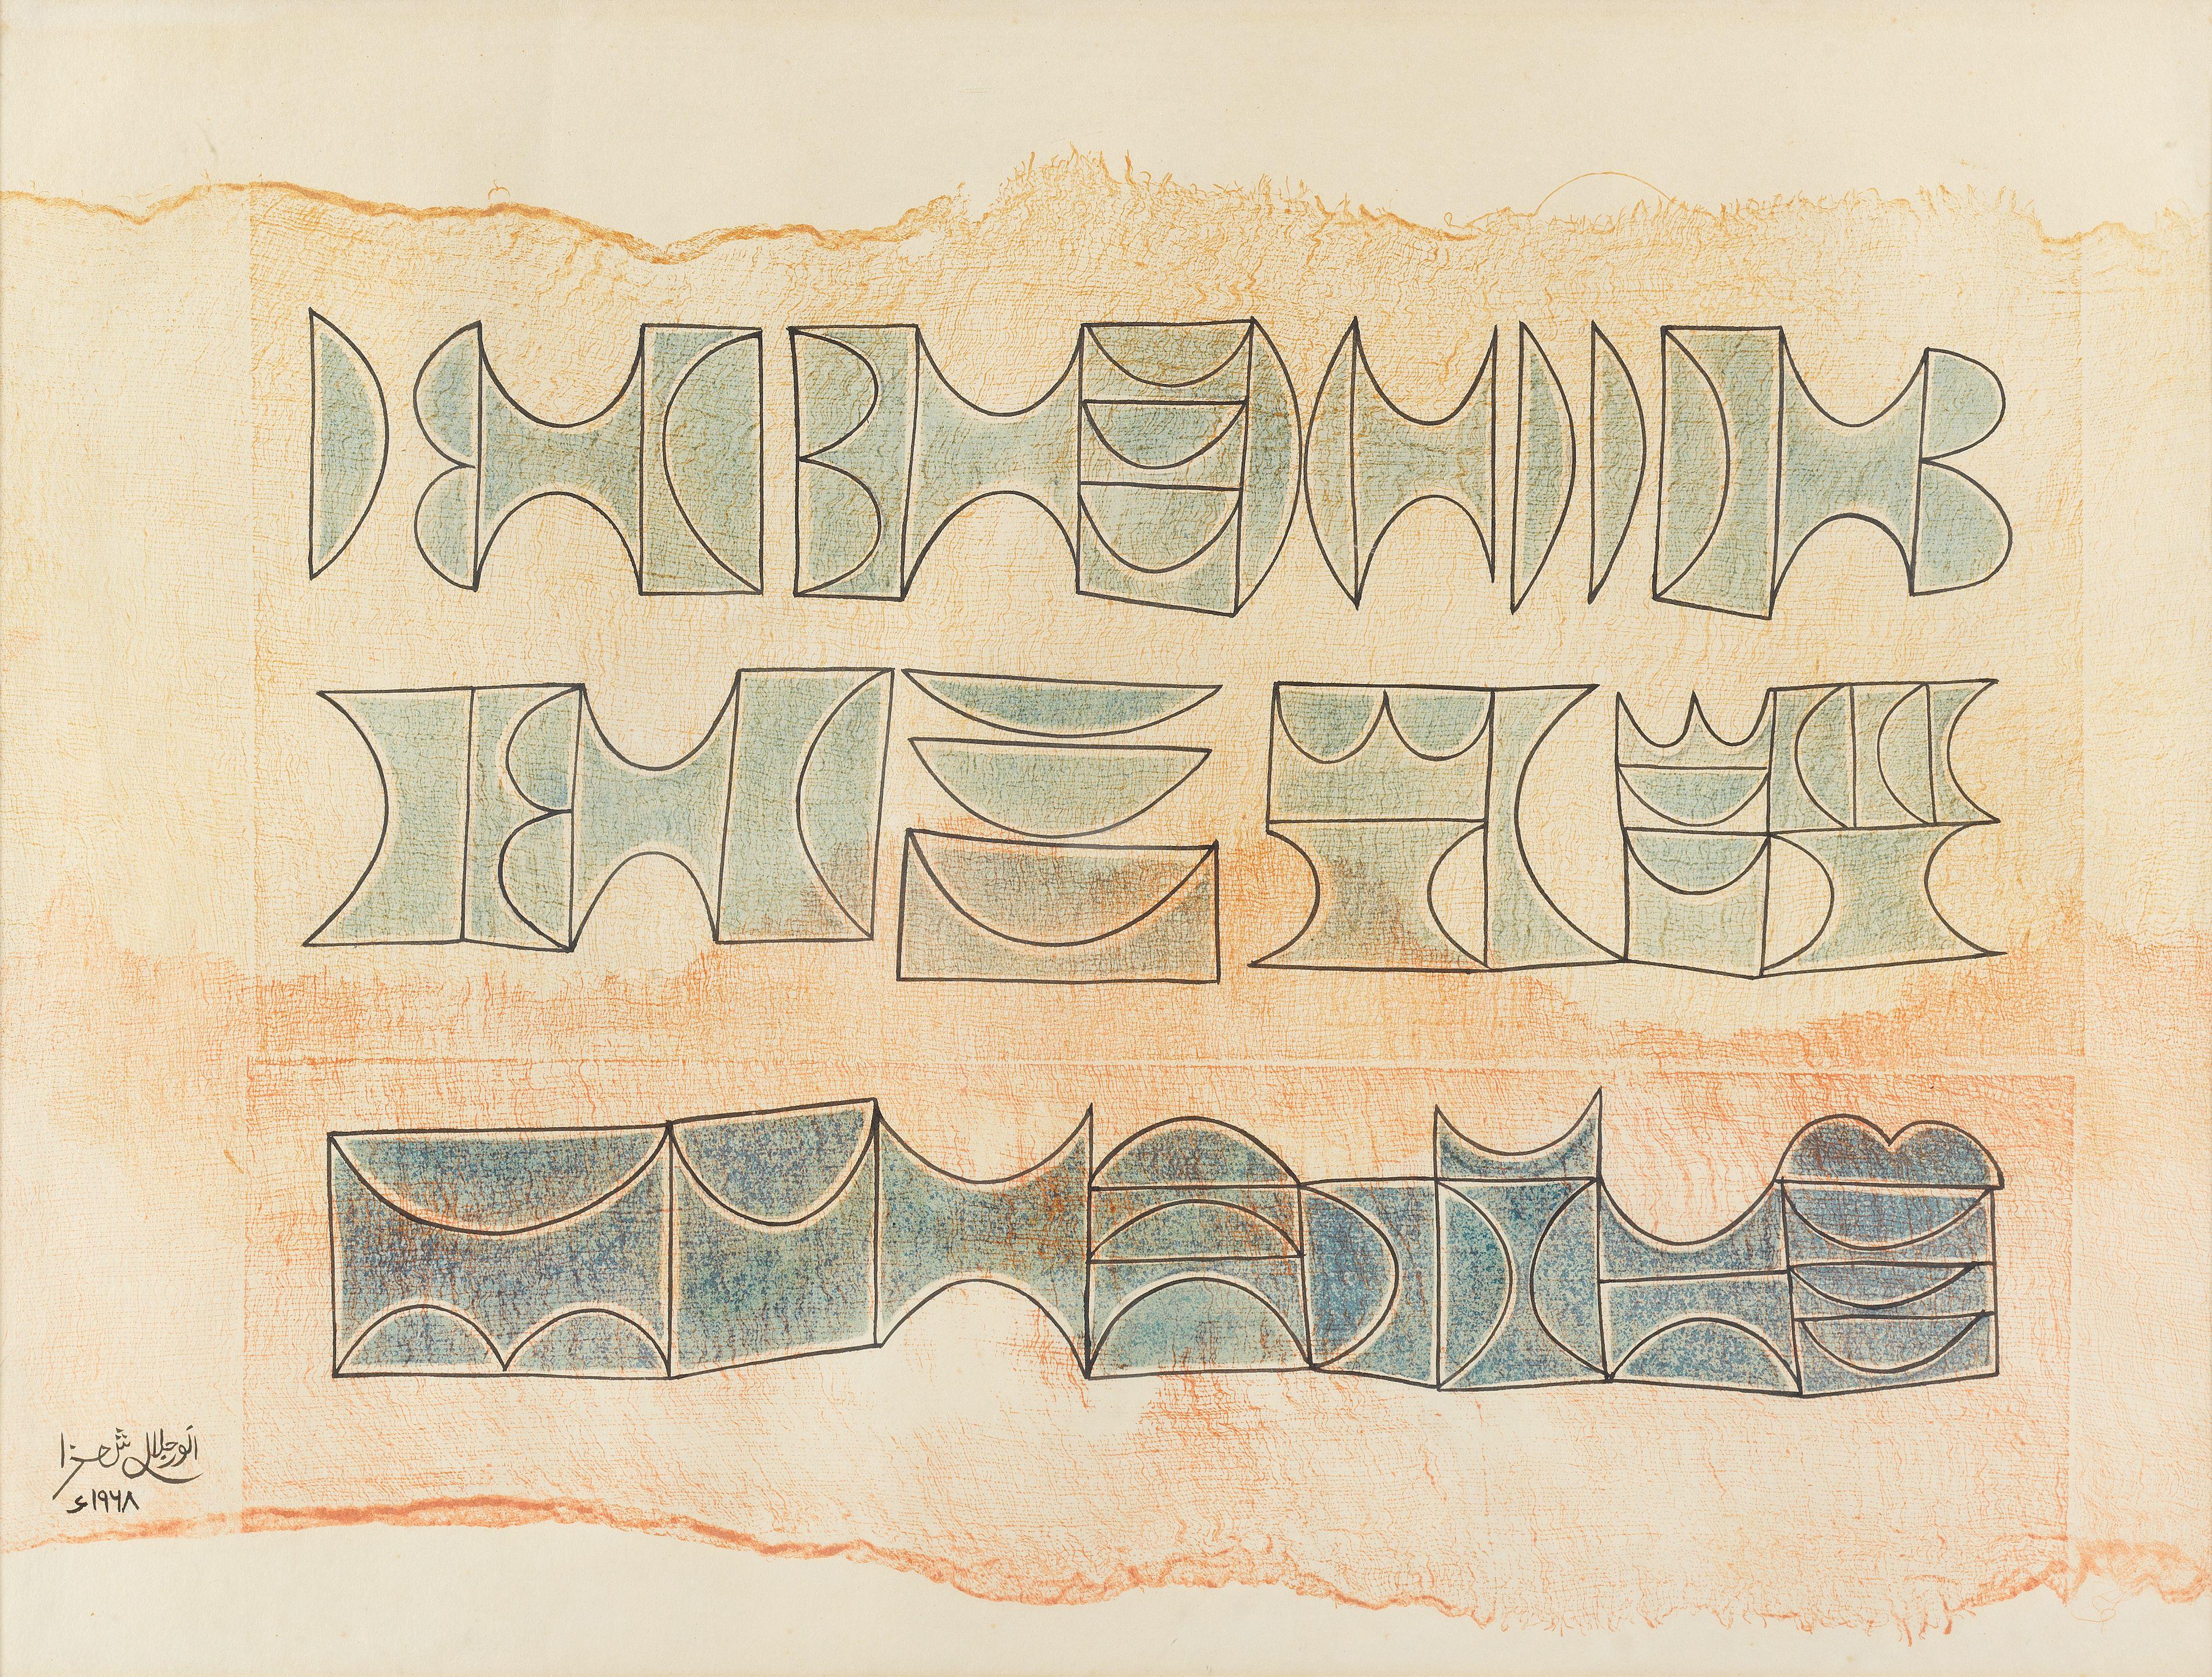 انور جلال شمزا
۱۹۶۸ء